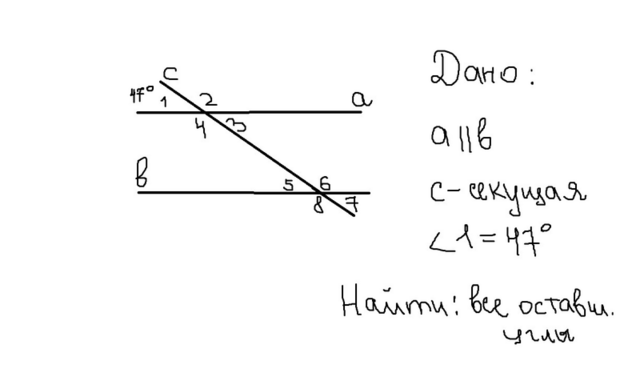 c
47° 1 2 a
4 3
в
5 6
8 7
Дано:
a || в
c - секущая
∠1 = 47°
Найти: все оставш.
углы